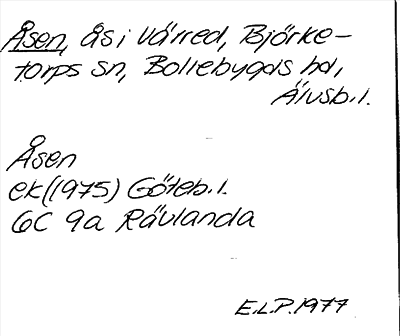 Åsen, ås i Värred, Björke-
torps sn, Bollebygds hd,
Älvsb.l.
Åsen
ek (1975) Göteb.l.
6C 9a Rävlanda
E.L.P. 1977